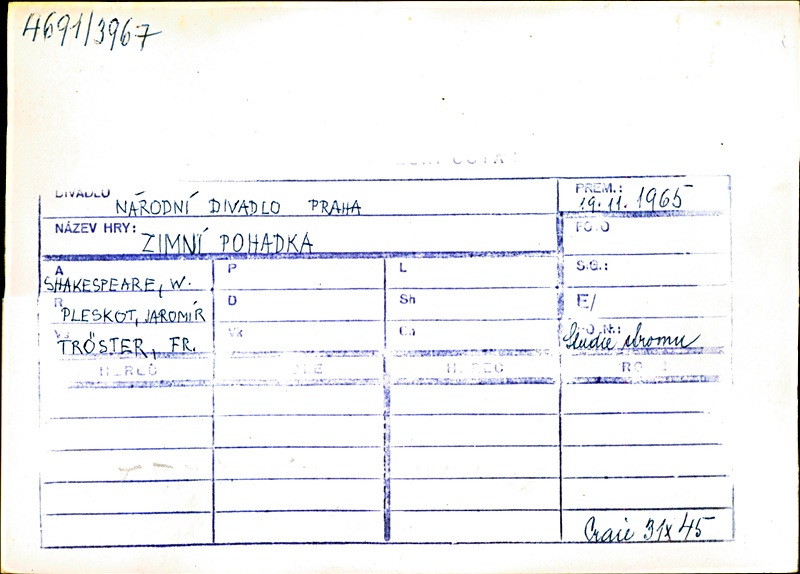 4691/3967
DIVADLO NÁRODNÍ DIVADLO PRAHA
PREM.: 19.11.1965
NÁZEV HRY: ZIMNÍ POHADKA
FOTO
A SHAKESPEARE, W.
P
L
S.G.:
R PLESKOT, JAROMÍR
D
Sh
E/
TRÖSTER, FR.
Vk
Studie stromu
HEREC
HEREC
Craie 31x45